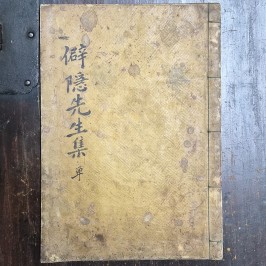 僻隱先生集 单